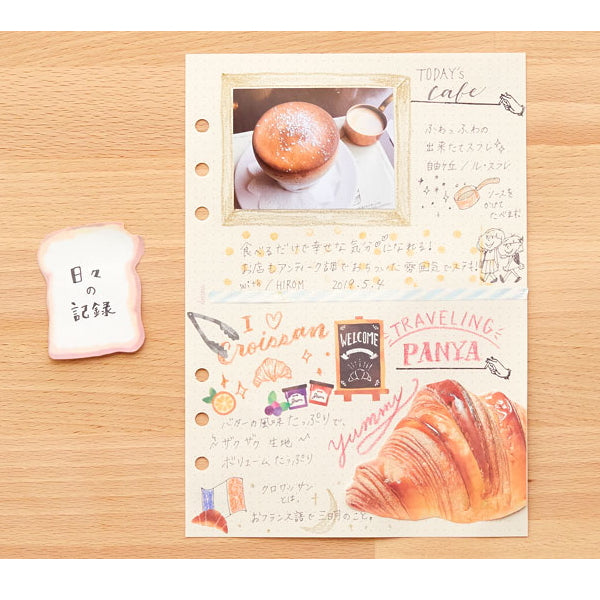 日々
の
記録
TODAY's
Cafe
ふわっふわの
出来たてスフレ
自由ヶ丘/ル・スフレ
ソースを
かけて
たべます
食べるだけで幸せな気分になれる!
お店もアンティーク調でおちついた雰囲気でステキ!
with/HIROMI 2019.5.4
I ♡
Croissan
WELCOME
TRAVELING
PANYA
yummy
バターの風味たっぷりで、
ザクザク生地〜
ボリュームたっぷり
クロワッサン
とは、
おフランス語で三日月のこと。